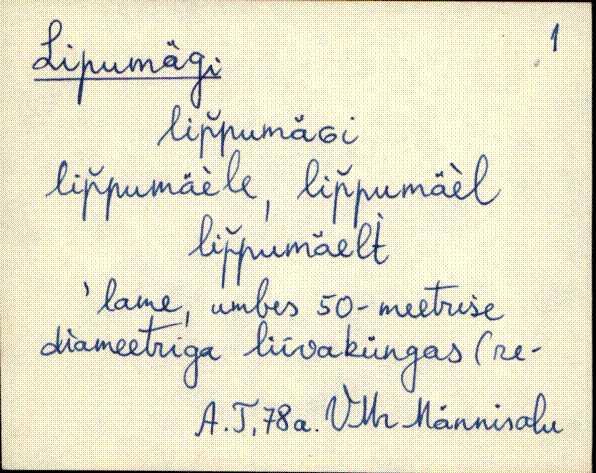 1
Lipumägi
lip̆pumäɢi
lip̆pumäèle, lip̆pumäèl
lip̆pumäelt̀
ˋlame, umbes 50-meetrise
diameetriga liivaküngas (re-
A.T, 78a. VMr Männisalu